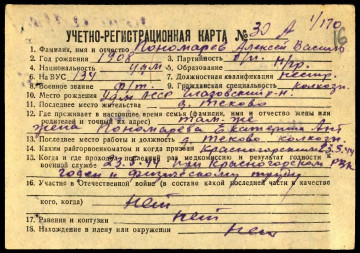 1/170
16
УЧЕТНО-РЕГИСТРАЦИОННАЯ КАРТА № 30 А
1. Фамилия, имя и отчество Пономарев Алексей Василь
2. Год рождения 1908 3. Партийность б/п.
4. Национальность удм 5. Образование н/гр.
6. На ВУС 134 7. Должностная квалификация
8. Военное звание 9. Гражданская специальность колхозн.
10. Место рождения Удм АССР Глазовский р-н.
11. Последнее место жительства д. Тсково
12. Где проживает в настоящее время семья (фамилия, имя и отчество жены или
родителей и точный их адрес) там-же
жена Пономарева Екатерина
13. Последнее место работы и должность д. Тсково колхоз.
14. Каким райгорвоенкоматом и когда призван Красногорским 23.5.44
15. Когда и где проходил раз медкомиссию и результат годности к
военной службе 23.5.44 при Красногорском РВК
годен к физическому труду
16. Участие в Отечественной войне (в составе какой последней части и качестве
кого, когда) нет
17. Ранения и контузии нет
18. Нахождение в плену или окружении нет